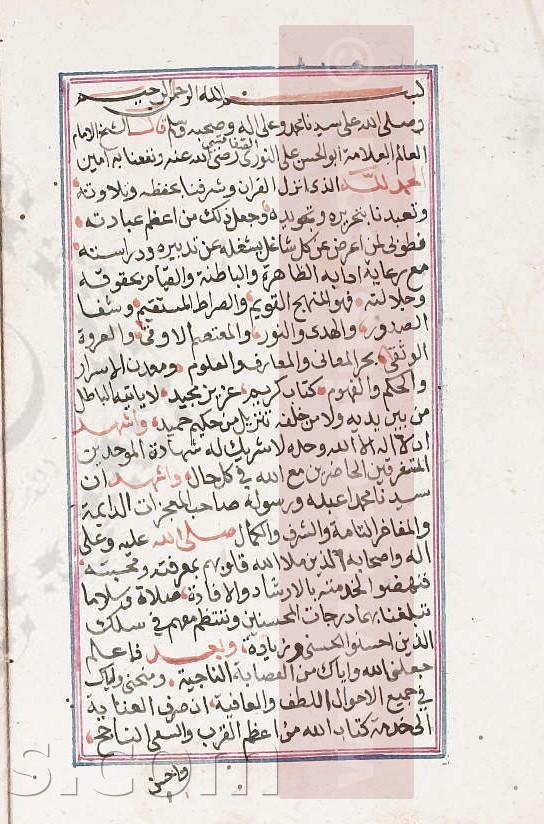 بسم الله الرحمن الرحيم
وصلى الله على سيدنا محمد وعلى اله وصحبه وسلم قال الشيخ الامام
العالم العلامة ابو الحسن على النورى الصفاقسى رضى الله عنه ونفعنا به امين
الحمد لله الذى انزل القران وشرفنا بحفظه وتلاوته
وتعبدنا بتحريره وتجويده وجعل ذلك من اعظم عبادته
فطوبى لمن اعرض عن كل شاغل يشغله عن تدبيره ودراسته
مع رعاية ادابه الظاهرة والباطنة والقيام بحقوقه
وجلالته فهو المنهج القويم والصراط المستقيم وشفا
الصدور والهدى والنور والمعتصم الاوقى والعروة
الوثقى بحر المعانى والمعارف والعلوم ومعدن الاسرار
والحكم والفهوم كتاب كريم عزيز مجيد لا ياتيه الباطل
من بين يديه ولا من خلفه تنزيل من حكيم حميد واشهد
ان لا اله الا الله وحده لا شريك له شهادة الموحدين
المستغرقين الحاضرين مع الله في كل حال واشهد ان
سيدنا محمدا عبده ورسوله صاحب المعجزات الدايمة
والمفاخر التامة والشرف والكمال صلى الله عليه وعلى
اله واصحابه الذين ملا الله قلوبهم بمعرفته ومحبته
فنهضوا لخدمته بالارشاد والافادة صلاة وسلاما
تبلغنا بهما درجات المحسنين وننتظم معهم في سلك
الذين احسنوا الحسنى وزيادة وبعد فاعلم
جعلنى الله واياك من العصابة الناجية ومنحنى واياك
في جميع الاحوال اللطف والعافية ان صرف العناية
الى خدمة كتاب الله من اعظم القرب والسعى الناجح
واحسن
s.com